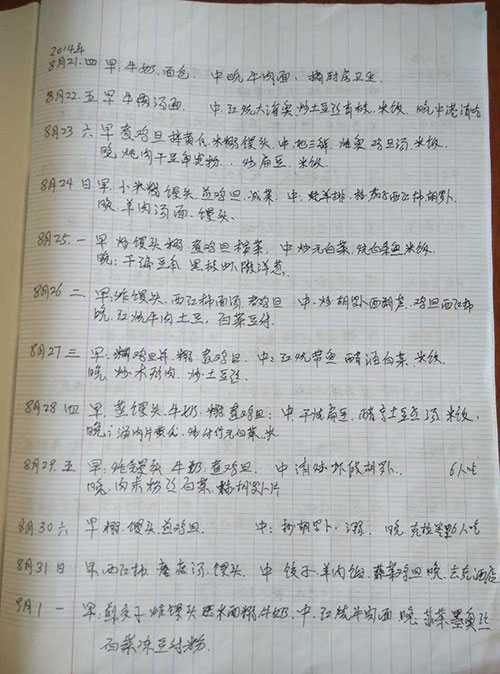 2014年
8月21.四 早:牛奶.面包. 中:吃牛肉面.搞厨房卫生.
8月22.五 早 牛肉汤面. 中 红烧大海鱼 炒土豆丝青椒.米饭.晚
8月23 六 早 煮鸡旦 拌黄瓜 米糊馒头.中.地三鲜.鸡旦汤.米饭.
晚 炖肉干豆角宽粉.、炒扁豆.米饭.
8月24 日 早.小米粥 馒头.煎鸡旦.咸菜. 中:炖羊排.西红柿.胡萝卜.
晚.羊肉汤面.馒头.
8月25.一 早 炸馒头 糊 煮鸡旦 榨菜. 中 炒元白菜.烧鱼 米饭.
晚:干煸豆角 黑椒虾 洋葱.
8月26 二 早:炸馒头.西红柿面汤 煮鸡旦 中:炒胡萝卜西葫芦.鸡旦西红柿
晚.红烧牛肉土豆.白菜豆付.
8月27 三 早:鸡旦羊.糊 煮鸡旦. 中:红烧带鱼 醋油白菜.米饭.
晚.炒木须肉.炒土豆丝.
8月28 四 早.蒸馒头.牛奶.糊 煮鸡旦. 中:干烧扁豆.土豆丝 汤 米饭.
晚:油肉片黄瓜.元白菜.米
8月29.五 早:炸馒头.牛奶.煮鸡旦. 中 清炒虾段胡萝卜. 6人吃
晚.肉末粉丝白菜.胡萝卜片
8月30 六 早 糊.馒头.煎鸡旦. 中:胡萝卜. 晚 6人吃
8月31 日 早 西红柿.蘑菇汤.馒头. 中 饺子.羊肉馅.鸡旦 晚.酒店
9月1 一 早.煎饺子 炸馒头 玉米面糊.牛奶.中.红烧牛肉面.晚.菠菜墨鱼丝
白菜冻豆付粉.